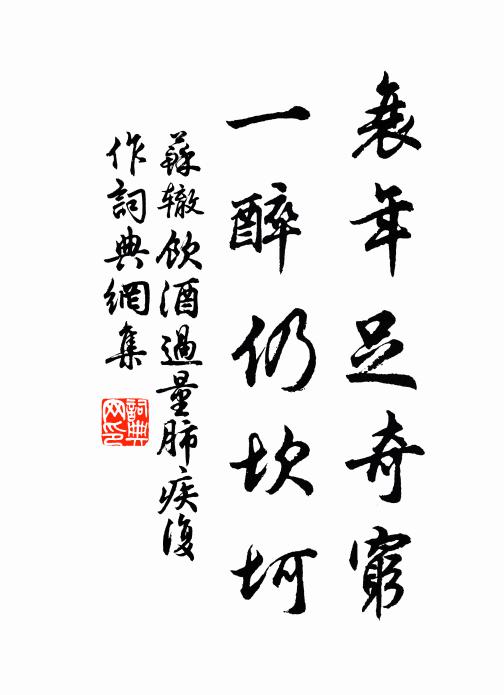 衰年足奇窮
一醉仍坎坷
蘇轍飲酒過量肺疾復
作詞典網集
詞典網印